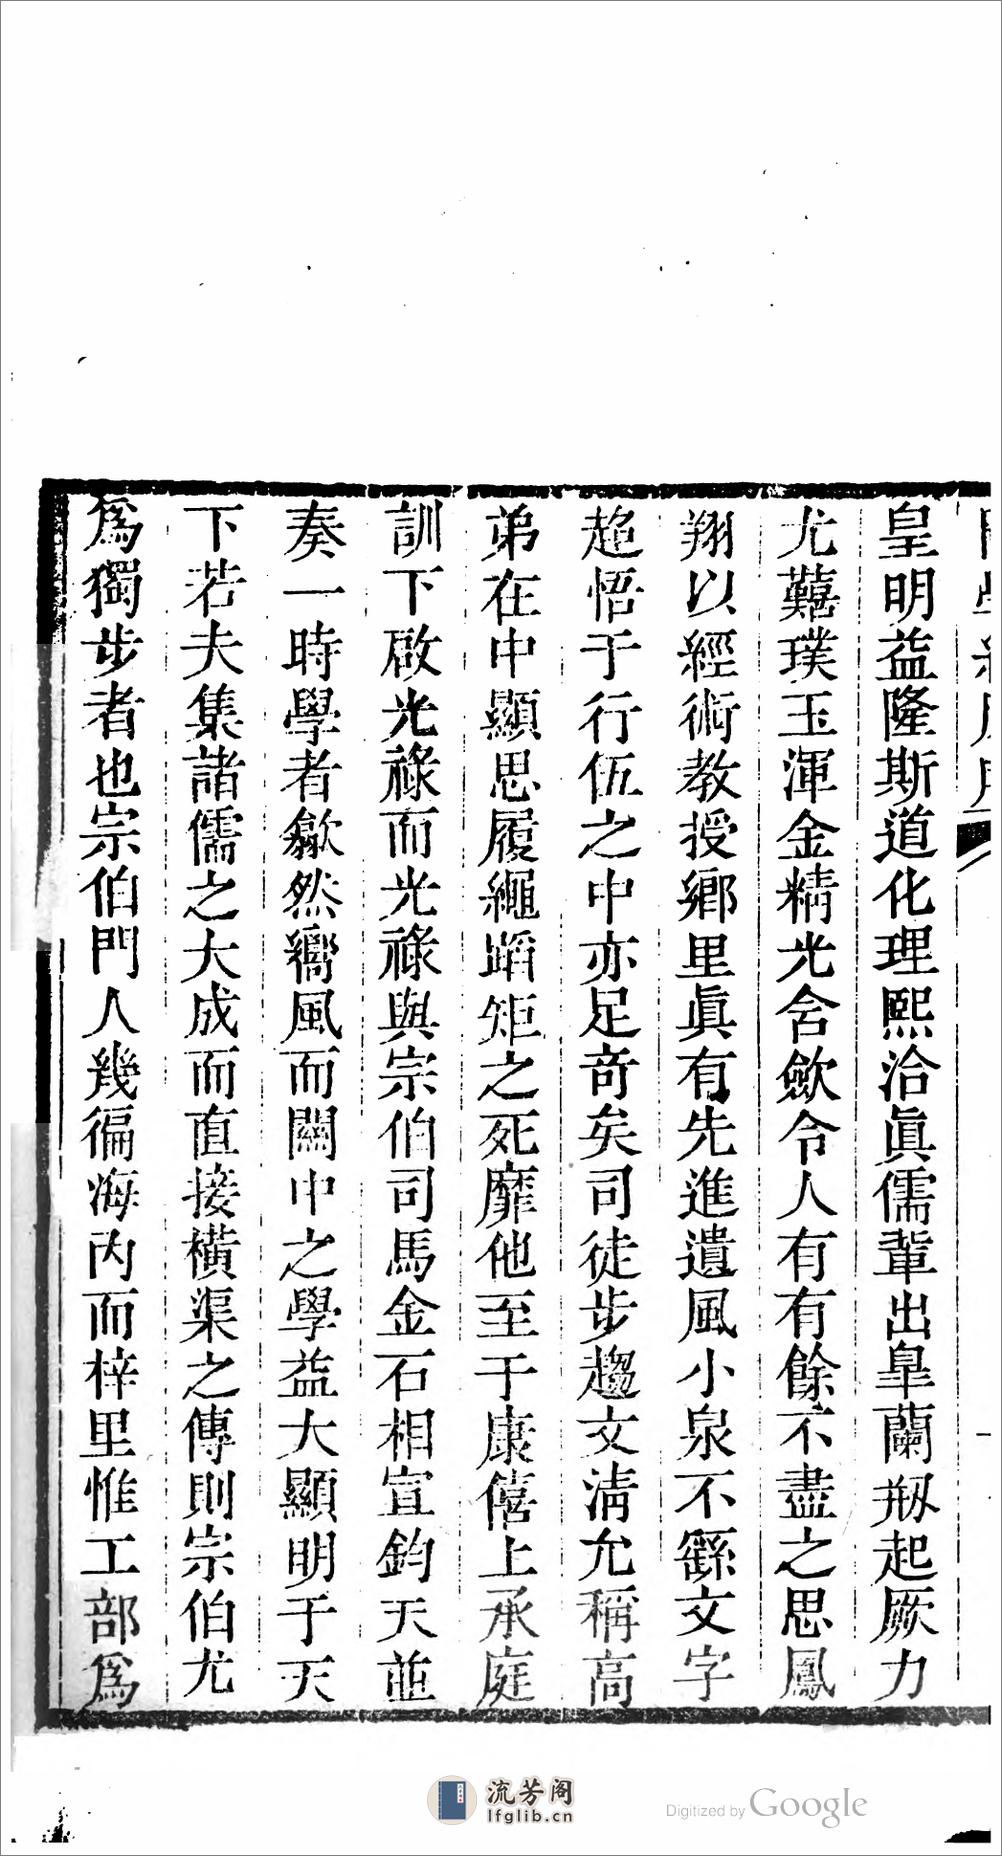 皇明益隆斯道化理熙洽眞儒輩出皐蘭剏起厥力
尤囏璞玉渾金精光含歛令人有有餘不盡之思鳳
翔以經術教授鄉里眞有先進遺風小泉不繇文字
超悟于行伍之中亦足奇矣司徒步趨文清允稱高
弟在中顯思履繩蹈矩之死靡他至于康僖上承庭
訓下啟光祿而光祿與宗伯司馬金石相宣鈞天並
奏一時學者翕然嚮風而關中之學益大顯明于天
下若夫集諸儒之大成而直接橫渠之傳則宗伯尤
爲獨步者也宗伯門人幾徧海內而梓里惟工部爲
流芳阁
lfglib.cn
Digitized by Google